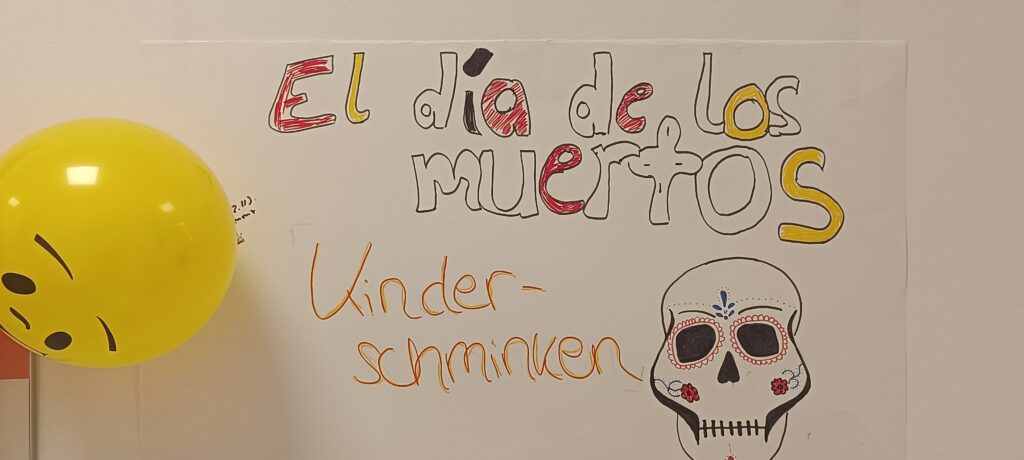 El día de los
muertos
Kinder-
schminken